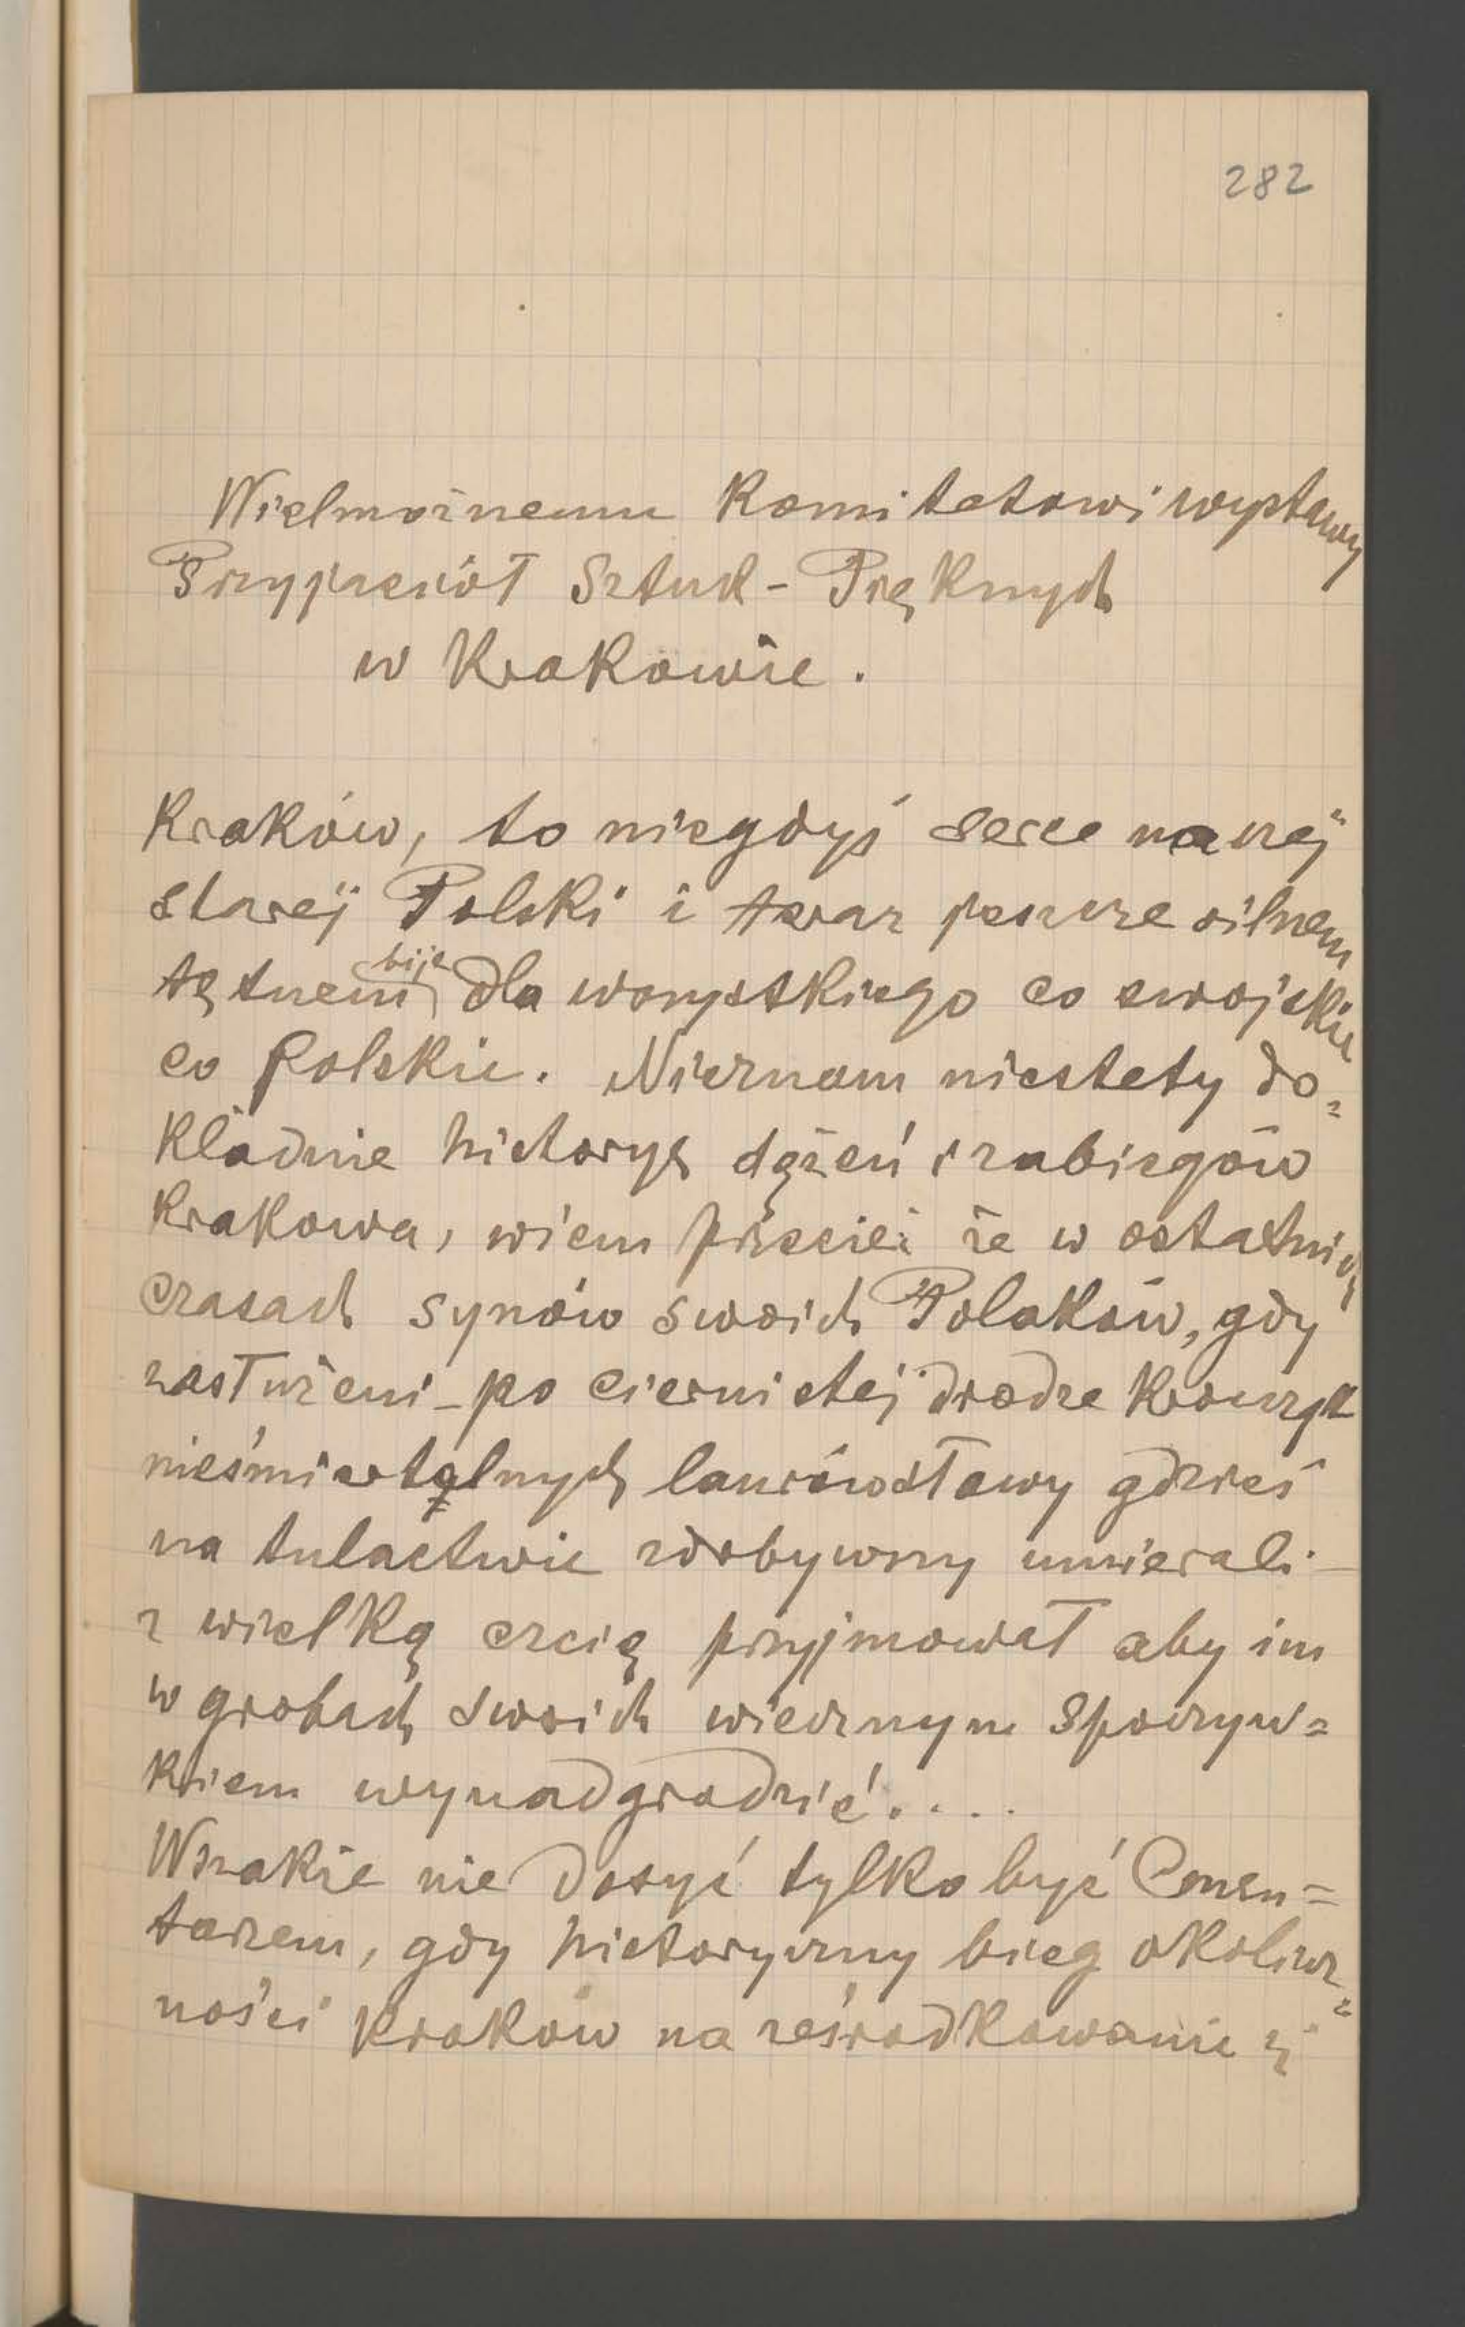 282
Wielmożnemu Komitetowi wystawy
Przyjaciół Sztuk - Pięknych
w Krakowie.
Kraków, to niegdyś serce naszej
starej Polski i teraz jeszcze silnem
tętnem bije dla wszystkiego co swojskie
co Polskie. Nieznam niestety do=
kładnie historyą dążeń i zabiegów
Krakowa, wiem przecież że w ostatnich
czasach synów swoich Polaków, gdy
zasłużeni - po ciernistej drodze krocząc
nieśmiertelnych laurów sławy gdzieś
na tułactwie zdobywszy umierali -
z wielką czcią przyjmował aby im
w grobach swoich wiecznym spoczyn=
kiem wynadgrodzić....
Wszakże nie dosyć tylko być Cmen=
tarzem, gdy historyczny bieg okolicz=
ności Kraków na ześrodkowanie